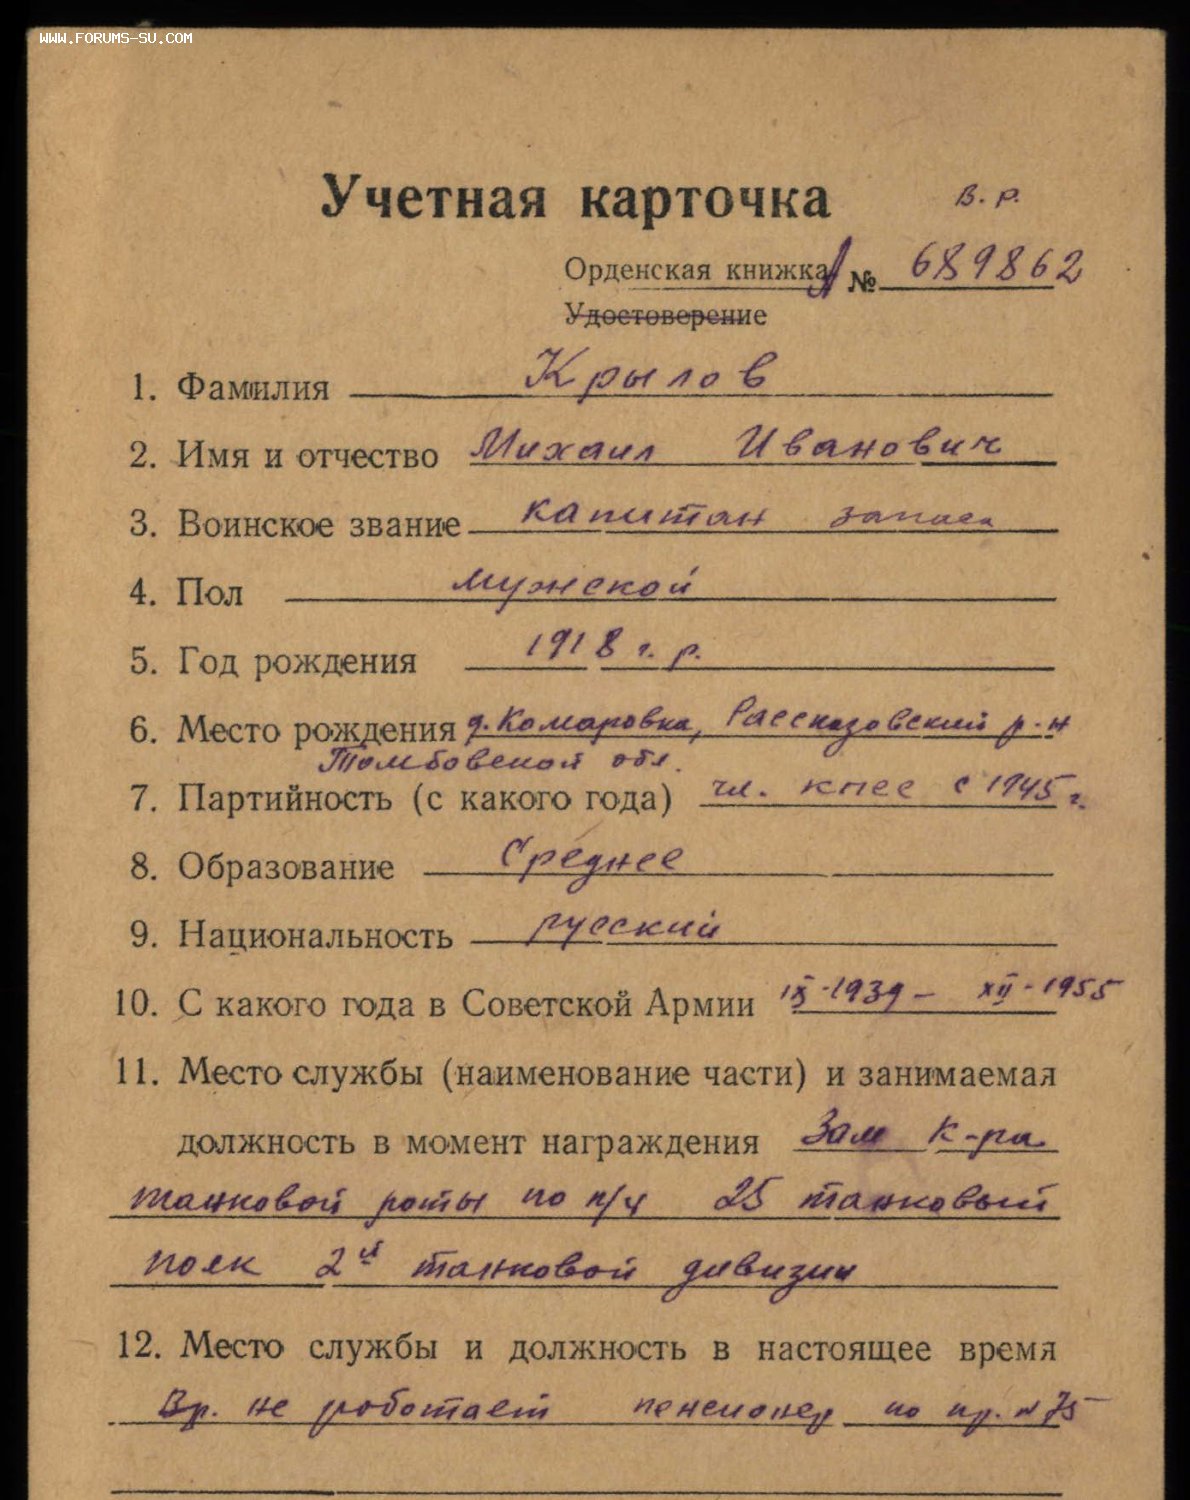 WWW.FORUMS-SU.COM
Учетная карточка
В. Р.
Орденская книжка А № 689862
Удостоверение
1. Фамилия Крылов
2. Имя и отчество Михаил Иванович
3. Воинское звание капитан запаса
4. Пол мужской
5. Год рождения 1918 г. р.
6. Место рождения д. Комаровка, Рассказовский р-н
Тамбовской обл.
7. Партийность (с какого года) чл. КПСС с 1945 г.
8. Образование Среднее
9. Национальность русский
10. С какого года в Советской Армии IX-1939 - XII-1955
11. Место службы (наименование части) и занимаемая
должность в момент награждения Зам к-ра
танковой роты по п/ч 25 танковый
полк 2й танковой дивизии
12. Место службы и должность в настоящее время
Вр. не работает пенсионер по пр. № 75